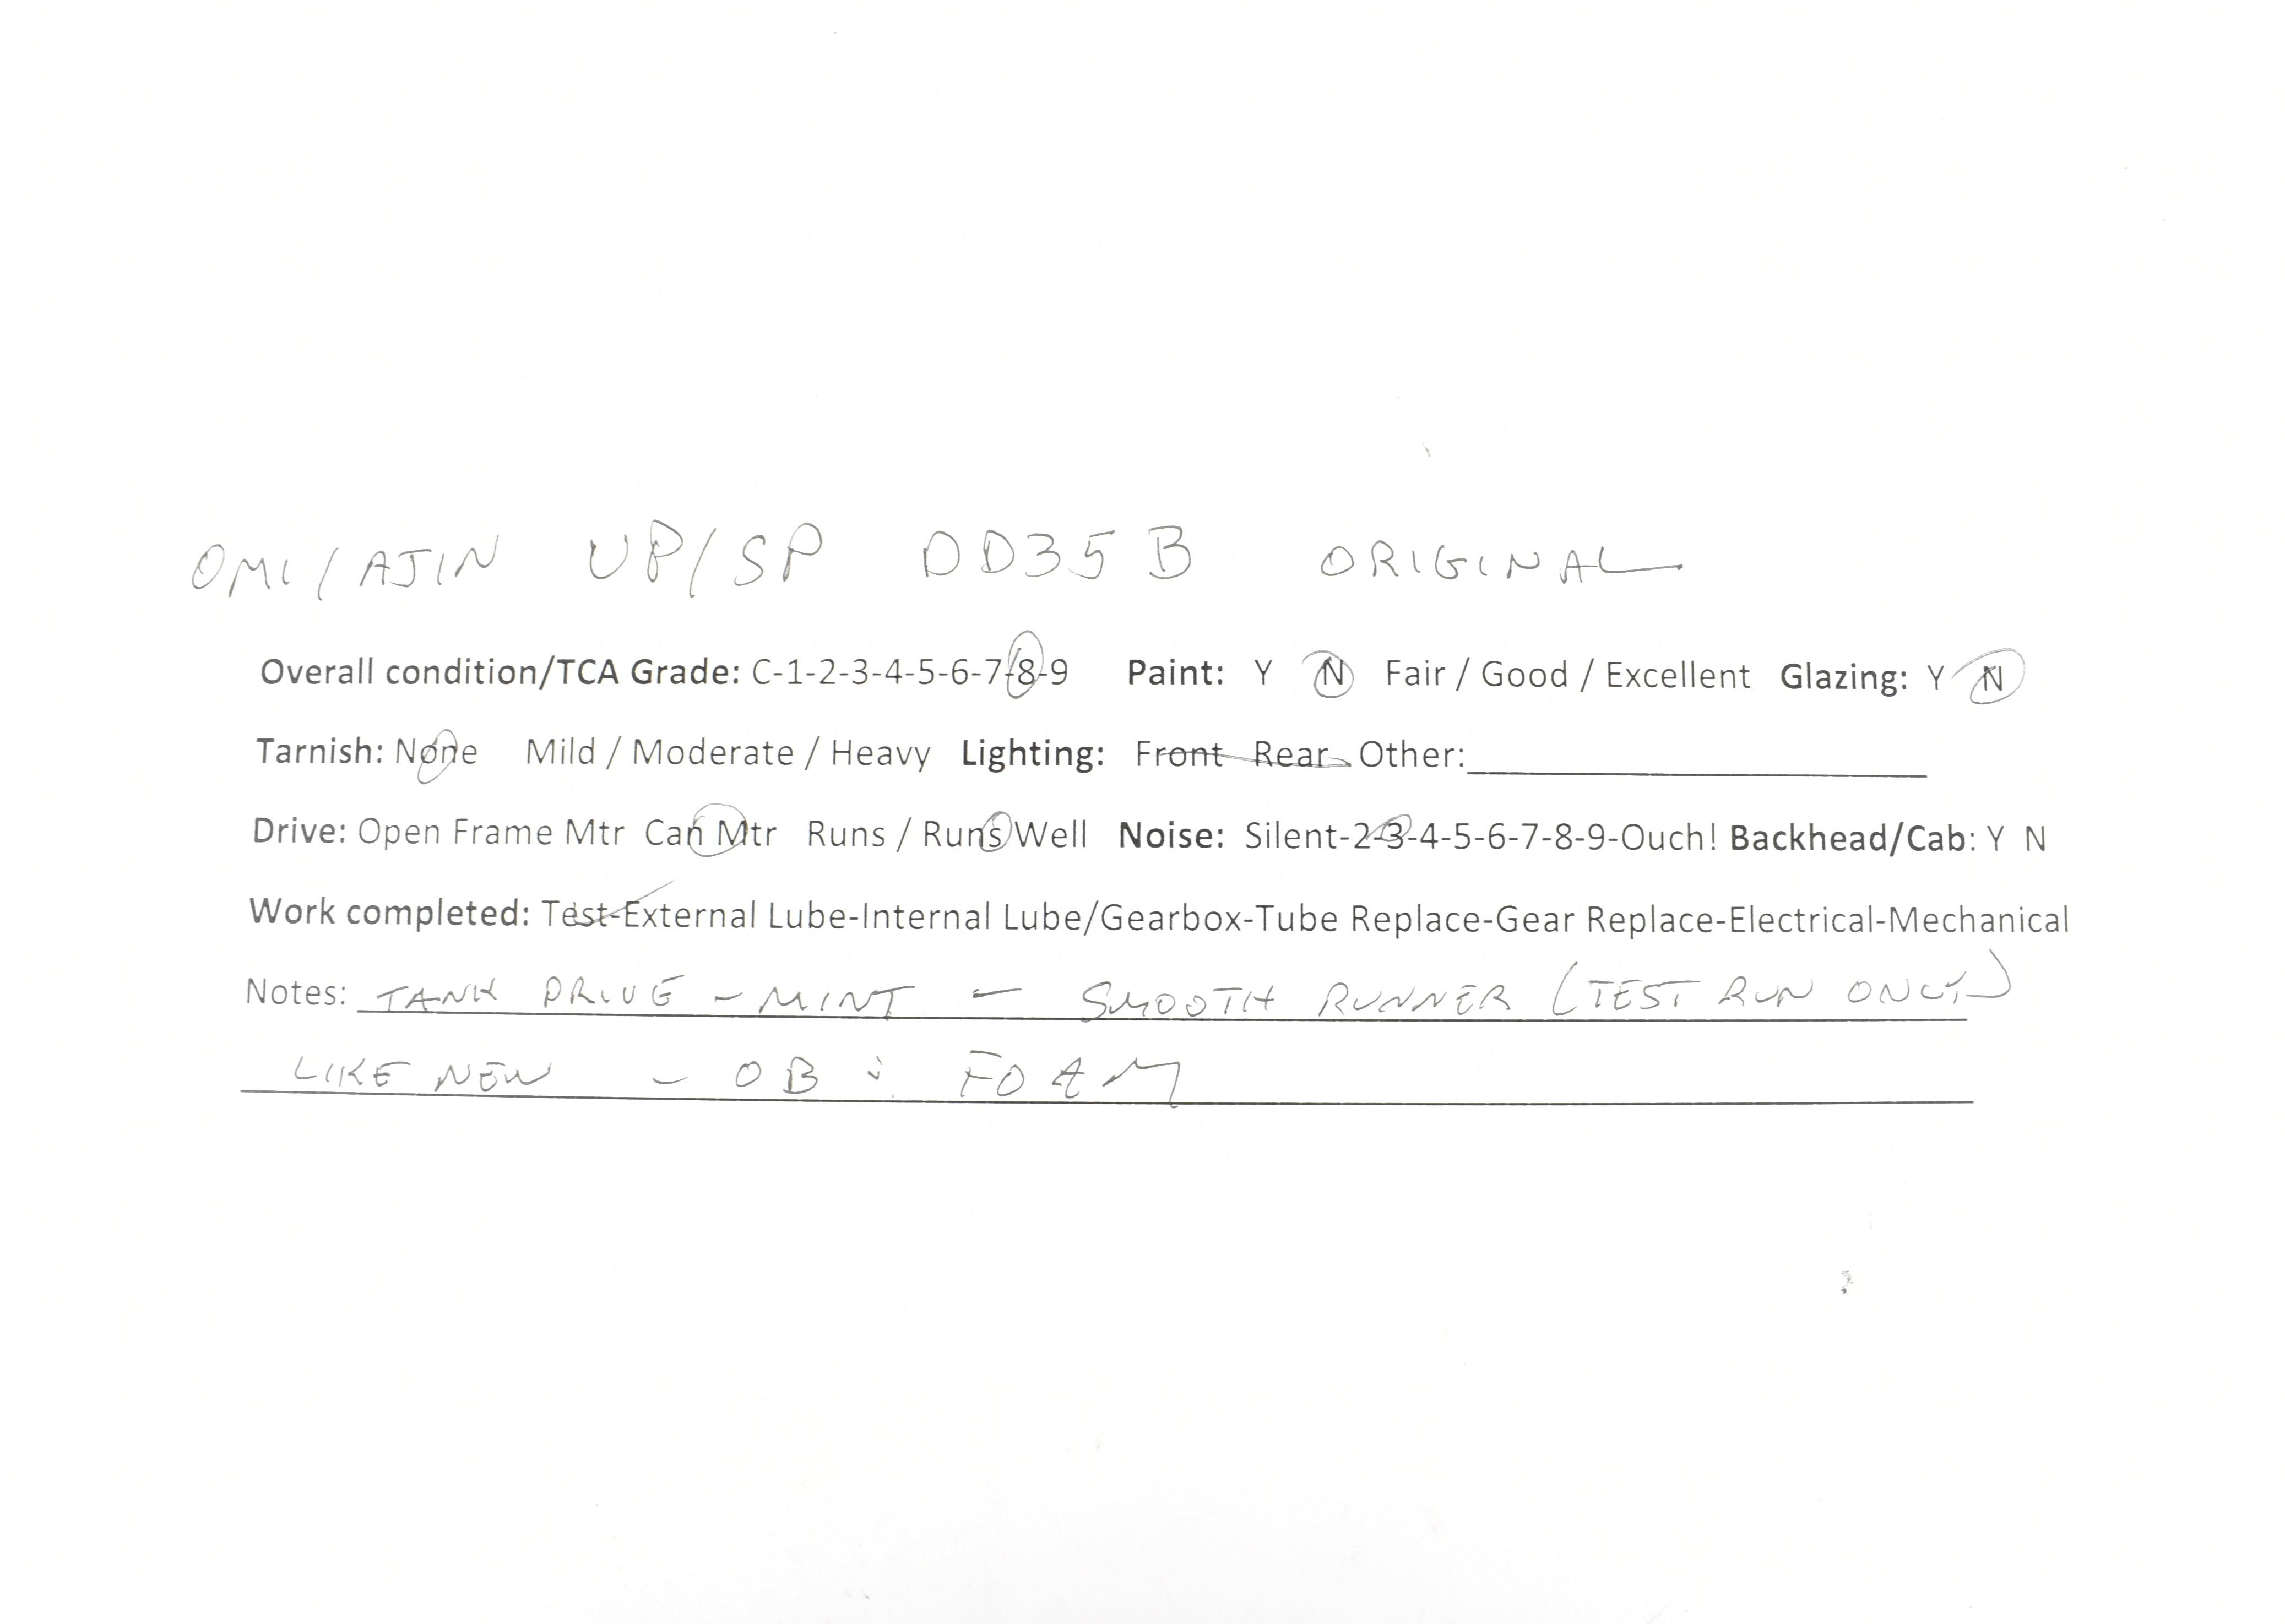 OMI/AJIN UP/SP DD35B ORIGINAL
Overall condition/TCA Grade: C-1-2-3-4-5-6-7-8-9 Paint: Y N Fair / Good / Excellent Glazing: Y N
Tarnish: None Mild / Moderate / Heavy Lighting: Front Rear Other:
Drive: Open Frame Mtr Can Mtr Runs / Runs Well Noise: Silent-2-3-4-5-6-7-8-9-Ouch! Backhead/Cab: Y N
Work completed: Test-External Lube-Internal Lube/Gearbox-Tube Replace-Gear Replace-Electrical-Mechanical
Notes: TANK DRIVE - MINT - SMOOTH RUNNER (TEST RUN ONLY)
LIKE NEW - OB & FOAM